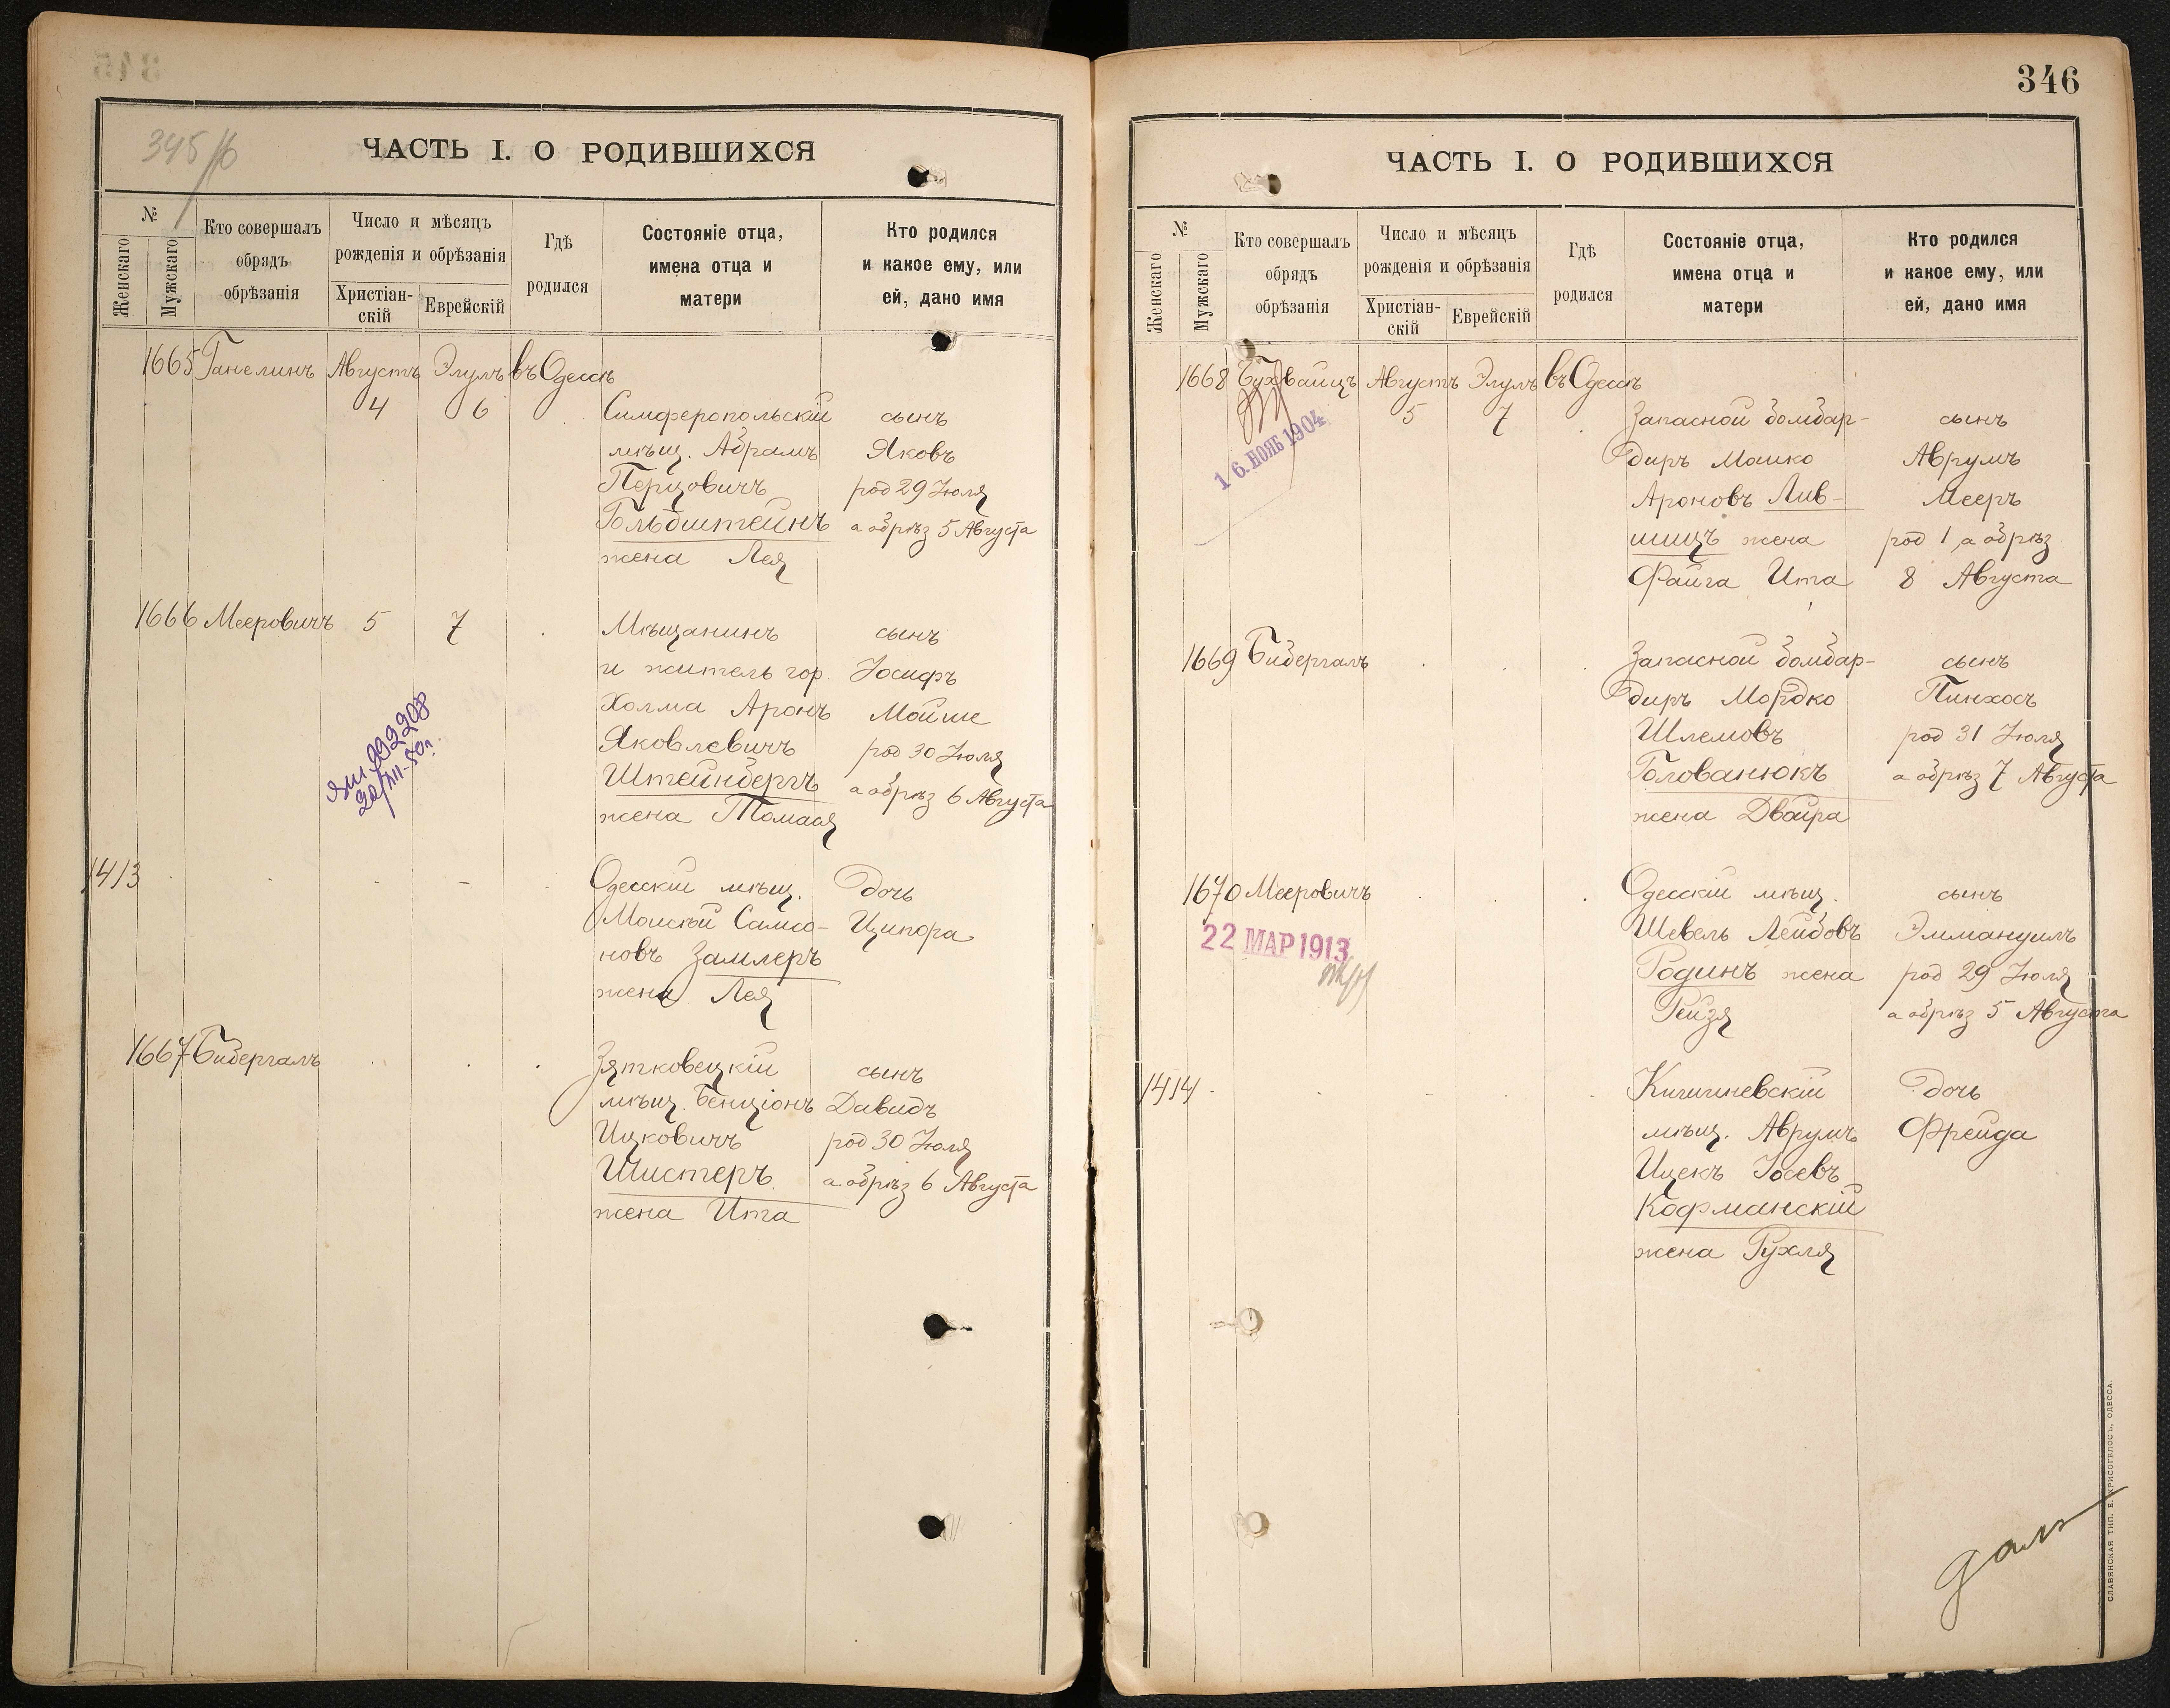 345 об
ЧАСТЬ I. О РОДИВШИХСЯ
№
Женскаго
Мужскаго
Кто совершалъ
обрядъ
обрѣзанія
Число и мѣсяцъ
рожденія и обрѣзанія
Христіан-
скій
Еврейскій
Гдѣ
родился
Состояніе отца,
имена отца и
матери
Кто родился
и какое ему, или
ей, дано имя
1665 Ганелинъ Августъ Элулъ въ Одессѣ
4 6 Симферопольскій сынъ
мѣщ. Абрамъ Яковъ
Перцовичъ род 29 Іюля
Гольдштейнъ а обрѣз 5 Августа
жена Лея
1666 Мееровичъ 5 7 Мѣщанинъ сынъ
и житель гор. Іосифъ
Холма Аронъ Мойше
Яковлевичъ род 30 Іюля
Штейнбергъ а обрѣз 6 Августа
жена
992208
20/VIII-50г.
1413 Одесскій мѣщ. дочь
Моисей Самсо- Ципора
новъ Замлеръ
жена Лея
1667 Бибергалъ Зятковецкій сынъ
мѣщ. Бенціонъ Давидъ
Ицковичъ род 30 Іюля
Шистеръ а обрѣз 6 Августа
жена Ита
346
ЧАСТЬ I. О РОДИВШИХСЯ
№
Женскаго
Мужскаго
Кто совершалъ
обрядъ
обрѣзанія
Число и мѣсяцъ
рожденія и обрѣзанія
Христіан-
скій
Еврейскій
Гдѣ
родился
Состояніе отца,
имена отца и
матери
Кто родился
и какое ему, или
ей, дано имя
1668 Бухвайцъ Августъ Элулъ въ Одессѣ
5 7 Запасной бомбар- сынъ
диръ Мошко Аврумъ
Ароновъ Лив- Мееръ
шицъ жена род 1, а обрѣз
Файга Ита 8 Августа
16. НОЯБ 1904
1669 Бибергалъ Запасной бомбар- сынъ
диръ Мордко Пинхосъ
Шлемовъ род 31 Іюля
Голованюкъ а обрѣз 7 Августа
жена Двойра
1670 Мееровичъ Одесскій мѣщ. сынъ
Шевель Лейбовъ Эммануилъ
Родинъ жена род 29 Іюля
Рейзя а обрѣз 5 Августа
22 МАР 1913
1414 Кишиневскій дочь
мѣщ. Аврумъ Фрейда
Ицекъ Іосевъ
Кофманскій
жена Рухля
СЛАВЯНСКАЯ ТИП. Е. ХРИСОГЕЛОСЪ, ОДЕССА.